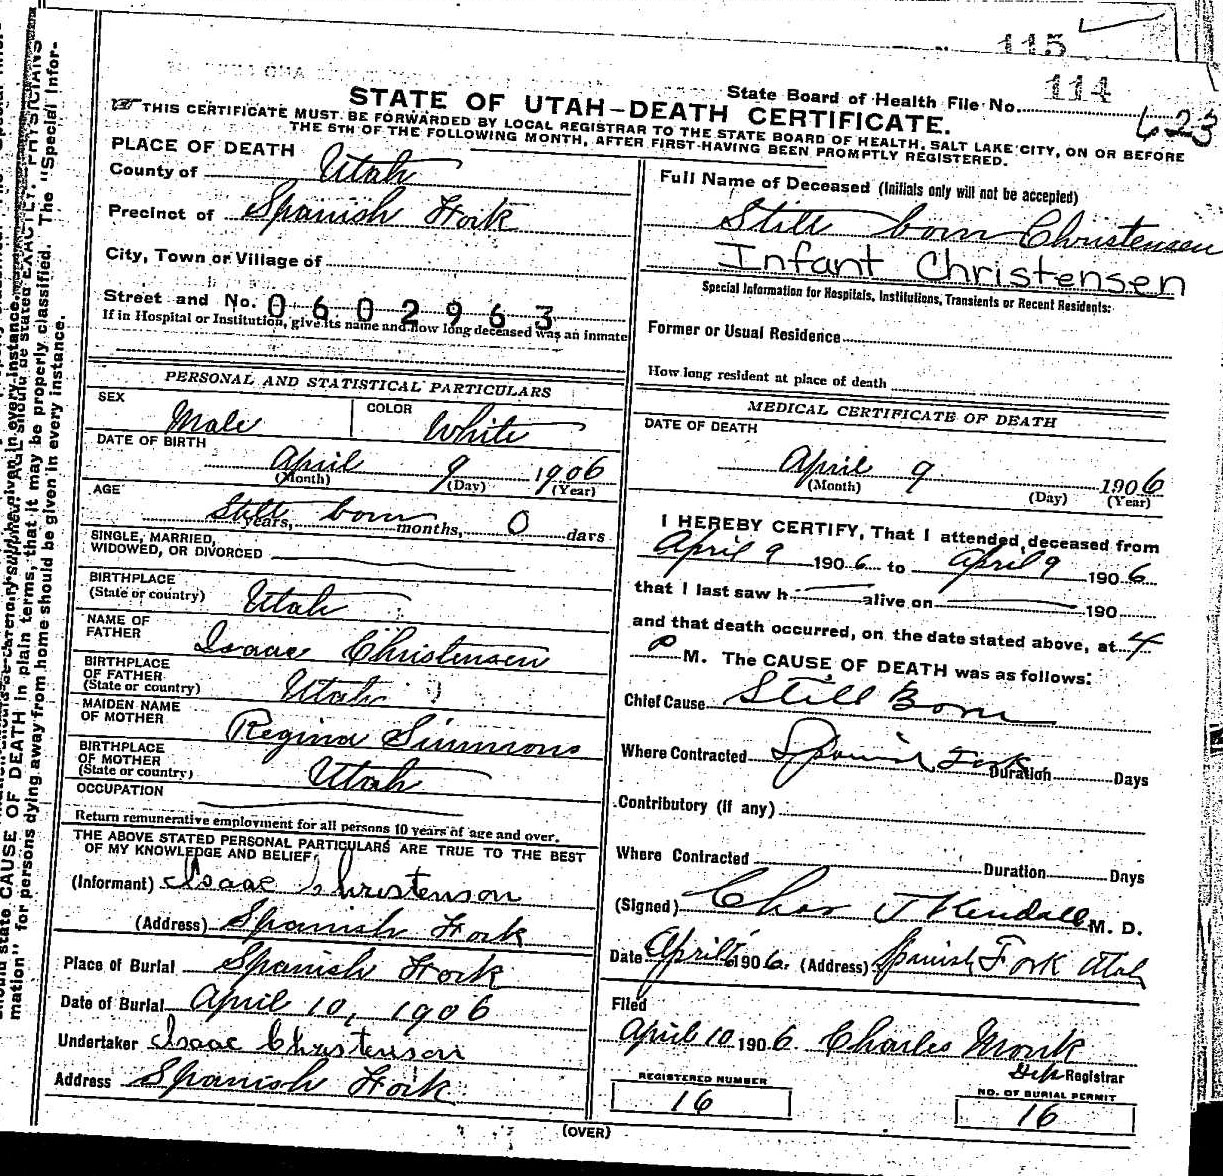 115
State Board of Health File No. 114
623
STATE OF UTAH—DEATH CERTIFICATE.
THIS CERTIFICATE MUST BE FORWARDED BY LOCAL REGISTRAR TO THE STATE BOARD OF HEALTH, SALT LAKE CITY, ON OR BEFORE
THE 5TH OF THE FOLLOWING MONTH, AFTER FIRST HAVING BEEN PROMPTLY REGISTERED.
PLACE OF DEATH
County of Utah
Precinct of Spanish Fork
City, Town or Village of
Street and No. 0602963
If in Hospital or Institution, give its name and how long deceased was an inmate
PERSONAL AND STATISTICAL PARTICULARS
SEX
Male
COLOR
White
DATE OF BIRTH
April 9 1906
(Month) (Day) (Year)
AGE
Still born 0
years, months, days
SINGLE, MARRIED,
WIDOWED, OR DIVORCED
BIRTHPLACE
(State or country) Utah
NAME OF
FATHER Isaac Christensen
BIRTHPLACE
OF FATHER
(State or country) Utah
MAIDEN NAME
OF MOTHER Regina Simmons
BIRTHPLACE
OF MOTHER
(State or country) Utah
OCCUPATION
Return remunerative employment for all persons 10 years of age and over.
THE ABOVE STATED PERSONAL PARTICULARS ARE TRUE TO THE BEST
OF MY KNOWLEDGE AND BELIEF.
(Informant) Isaac Christenson
(Address) Spanish Fork
Place of Burial Spanish Fork
Date of Burial April 10, 1906
Undertaker Isaac Christenson
Address Spanish Fork
Full Name of Deceased (Initials only will not be accepted)
Still born Christensen
Infant Christensen
Special Information for Hospitals, Institutions, Transients or Recent Residents:
Former or Usual Residence
How long resident at place of death
MEDICAL CERTIFICATE OF DEATH
DATE OF DEATH
April 9 1906
(Month) (Day) (Year)
I HEREBY CERTIFY, That I attended deceased from
April 9 1906 to April 9 1906
that I last saw h alive on 190
and that death occurred, on the date stated above, at 4
P M. The CAUSE OF DEATH was as follows:
Chief Cause Still Born
Where Contracted Spanish Fork Duration Days
Contributory (if any)
Where Contracted Duration Days
(Signed) Chas J Kendall M. D.
Date April 1906. (Address) Spanish Fork Utah
Filed
April 10 1906 Charles Monk
Dep Registrar
REGISTERED NUMBER
16
NO. OF BURIAL PERMIT
16
(OVER)
CAUSE OF DEATH in plain terms, that it may be properly classified. The "Special Infor-
mation" for persons dying away from home should be given in every instance.